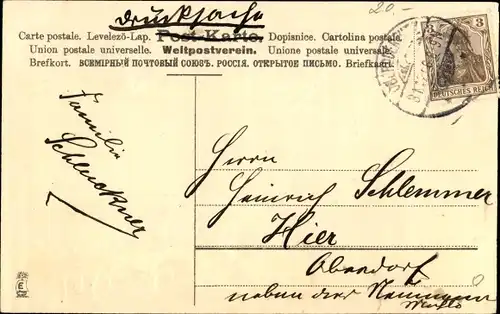 20-
Drucksache
Carte postale. Levelező-Lap. Post-Karte. Dopisnice. Cartolina postale.
Union postale universelle. Weltpostverein. Unione postale universale.
Brefkort. ВСЕМІРНЫЙ ПОЧТОВЫЙ СОЮЗЪ. РОССІЯ. ОТКРЫТОЕ ПИСЬМО. Briefkaart.
3 3
DEUTSCHES REICH
Familie
Schluckner
Herrn
Heinrich Schlemmer
Hier
Oberdorf
neben der
E